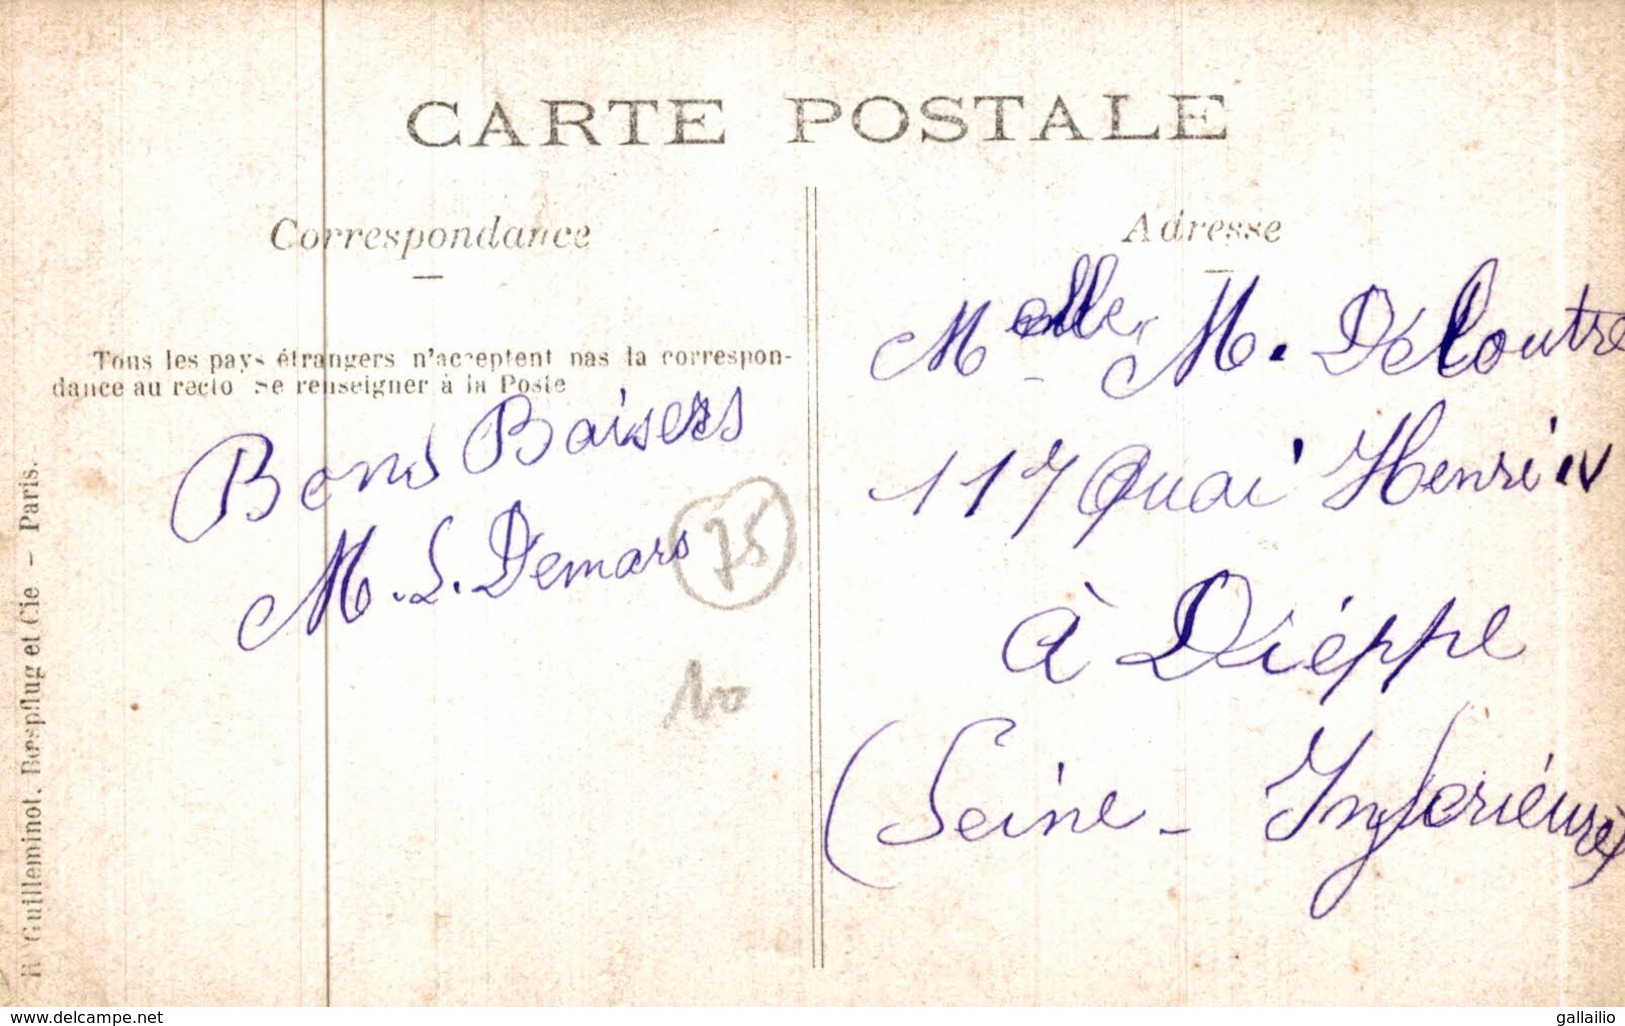 CARTE POSTALE
Correspondance
Tous les pays étrangers n'acceptent pas la correspon-
dance au recto Se renseigner à la Poste
Bons Baisers
M. L. Demars
75
100
Adresse
Melle M. Deloutre
117 Quai Henri IV
à Dièppe
(Seine - Inférieure)
R. Guilleminot, Bœspflug et Cie - Paris.
www.delcampe.net
gallailio